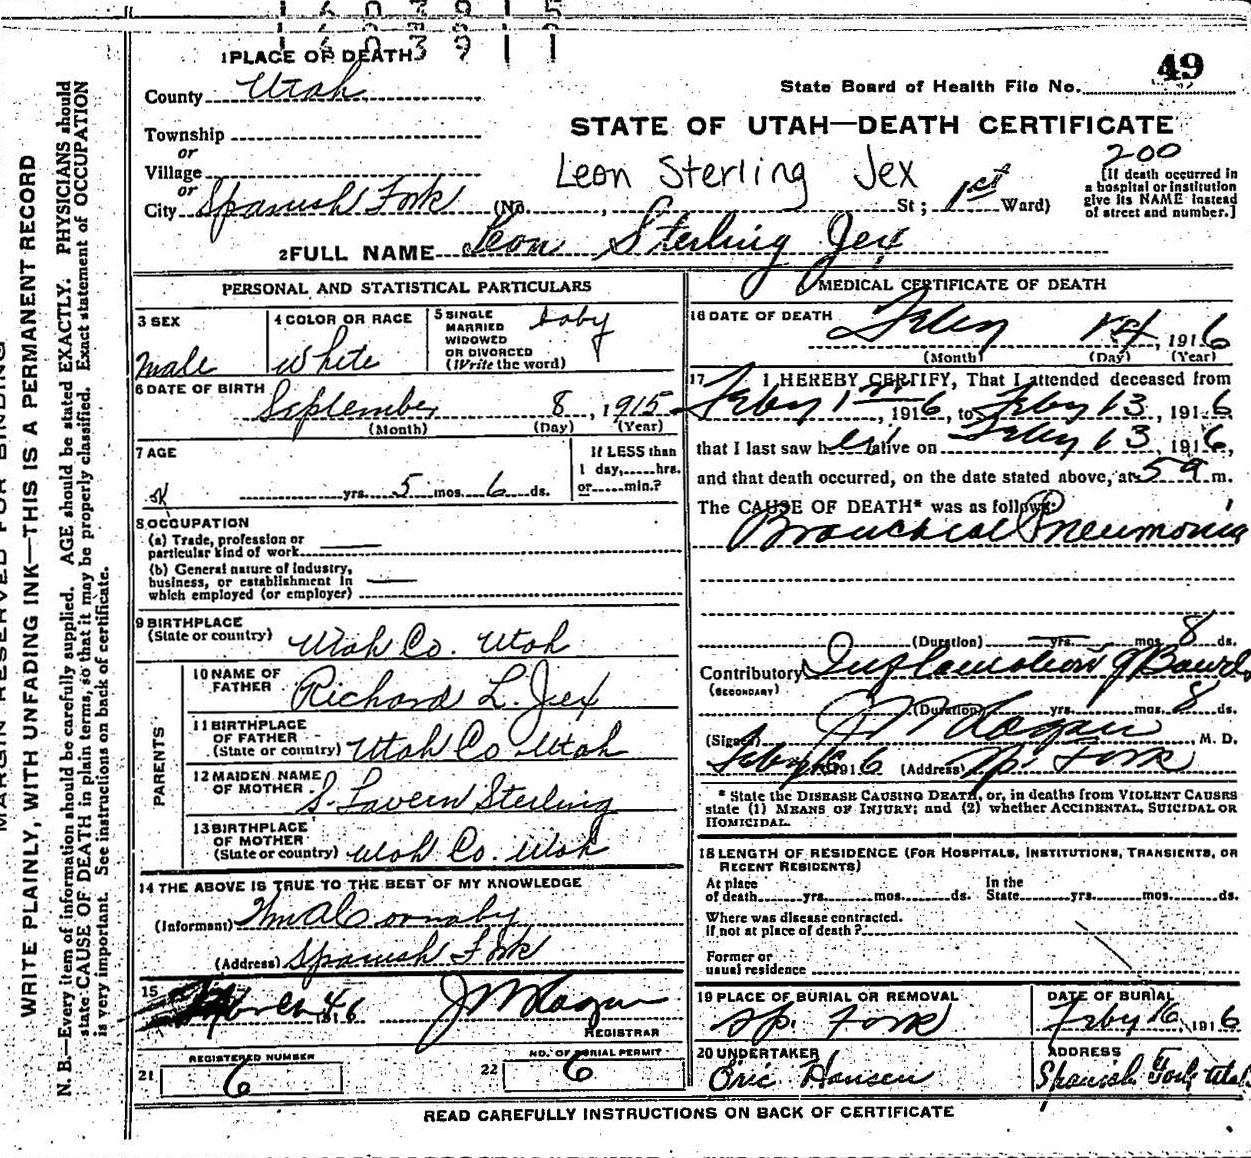 1 6 0 3 9 1 5
1 6 0 3 9 1 1
1 PLACE OF DEATH
County Utah
Township
or
Village
or
City Spanish Fork (No. , St ; 1st Ward)
State Board of Health File No. 49
STATE OF UTAH—DEATH CERTIFICATE
200
Leon Sterling Jex
[If death occurred in
a hospital or institution
give its NAME instead
of street and number.]
2 FULL NAME Leon Sterling Jex
PERSONAL AND STATISTICAL PARTICULARS
3 SEX
male
4 COLOR OR RACE
White
5 SINGLE
MARRIED
WIDOWED
OR DIVORCED
(Write the word)
baby
6 DATE OF BIRTH
September 8, 1915
(Month) (Day) (Year)
7 AGE
yrs. 5 mos. 6 ds.
If LESS than
1 day, hrs.
or min.?
8 OCCUPATION
(a) Trade, profession or
particular kind of work
(b) General nature of industry,
business, or establishment in
which employed (or employer)
9 BIRTHPLACE
(State or country) Utah Co. Utah
PARENTS
10 NAME OF
FATHER Richard L. Jex
11 BIRTHPLACE
OF FATHER
(State or country) Utah Co Utah
12 MAIDEN NAME
OF MOTHER S. Lavern Sterling
13 BIRTHPLACE
OF MOTHER
(State or country) Utah Co. Utah
14 THE ABOVE IS TRUE TO THE BEST OF MY KNOWLEDGE
(Informant) Wm A Cornaby
(Address) Spanish Fork
15
J M Hagan
REGISTRAR
REGISTERED NUMBER
21 6
NO. OF BURIAL PERMIT
22 6
MEDICAL CERTIFICATE OF DEATH
16 DATE OF DEATH
Feby 14, 1916
(Month) (Day) (Year)
17 I HEREBY CERTIFY, That I attended deceased from
Feby 1st, 1916, to Feby 13, 1916
that I last saw him alive on Feby 13, 1916,
and that death occurred, on the date stated above, at 5 a m.
The CAUSE OF DEATH* was as follows:
Bronchial Pneumonia
(Duration) yrs. mos. 8 ds.
Contributory Inflamation of Bowels
(SECONDARY)
(Duration) yrs. mos. 8 ds.
(Signed) J M Hagan M. D.
Feby 1916 (Address) Sp. Fork
* State the DISEASE CAUSING DEATH, or, in deaths from VIOLENT CAUSES
state (1) MEANS OF INJURY; and (2) whether ACCIDENTAL, SUICIDAL OR
HOMICIDAL.
18 LENGTH OF RESIDENCE (FOR HOSPITALS, INSTITUTIONS, TRANSIENTS, OR
RECENT RESIDENTS)
At place
of death yrs. mos. ds.
In the
State yrs. mos. ds.
Where was disease contracted.
if not at place of death?
Former or
usual residence
19 PLACE OF BURIAL OR REMOVAL
Sp. Fork
DATE OF BURIAL
Feby 16, 1916
20 UNDERTAKER
Eric Hansen
ADDRESS
Spanish Fork Utah
READ CAREFULLY INSTRUCTIONS ON BACK OF CERTIFICATE
MARGIN RESERVED FOR BINDING
WRITE PLAINLY, WITH UNFADING INK—THIS IS A PERMANENT RECORD
N. B.—Every item of information should be carefully supplied. AGE should be stated EXACTLY. PHYSICIANS should
state CAUSE OF DEATH in plain terms, so that it may be properly classified. Exact statement of OCCUPATION
is very important. See instructions on back of certificate.